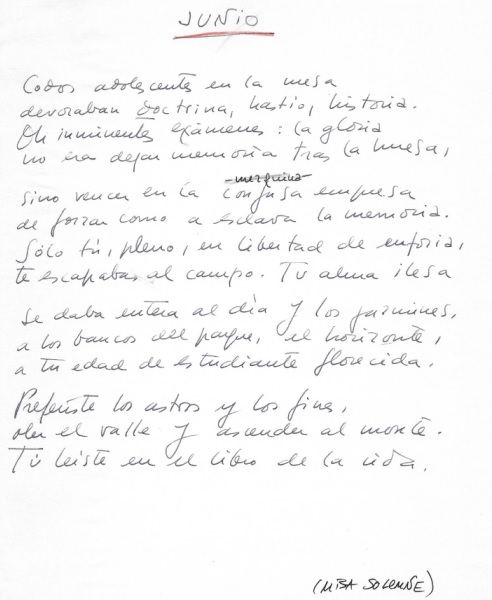 JUNIO
Codos adolescentes en la mesa
devoraban doctrina, hastío, historia.
Oh inminentes exámenes: la gloria
no era dejar memoria tras la huesa,
mezquina
sino vencer en la confusa empresa
de forzar como a esclava la memoria.
Sólo tú, pleno, en libertad de euforia,
te escapabas al campo. Tu alma ilesa
se daba entera al día y los jazmines,
a los bancos del parque, el horizonte,
a tu edad de estudiante florecida.
Preferiste los astros y los fines,
oler el valle y ascender al monte.
Tú leíste en el libro de la vida.
(MISA SOLEMNE)